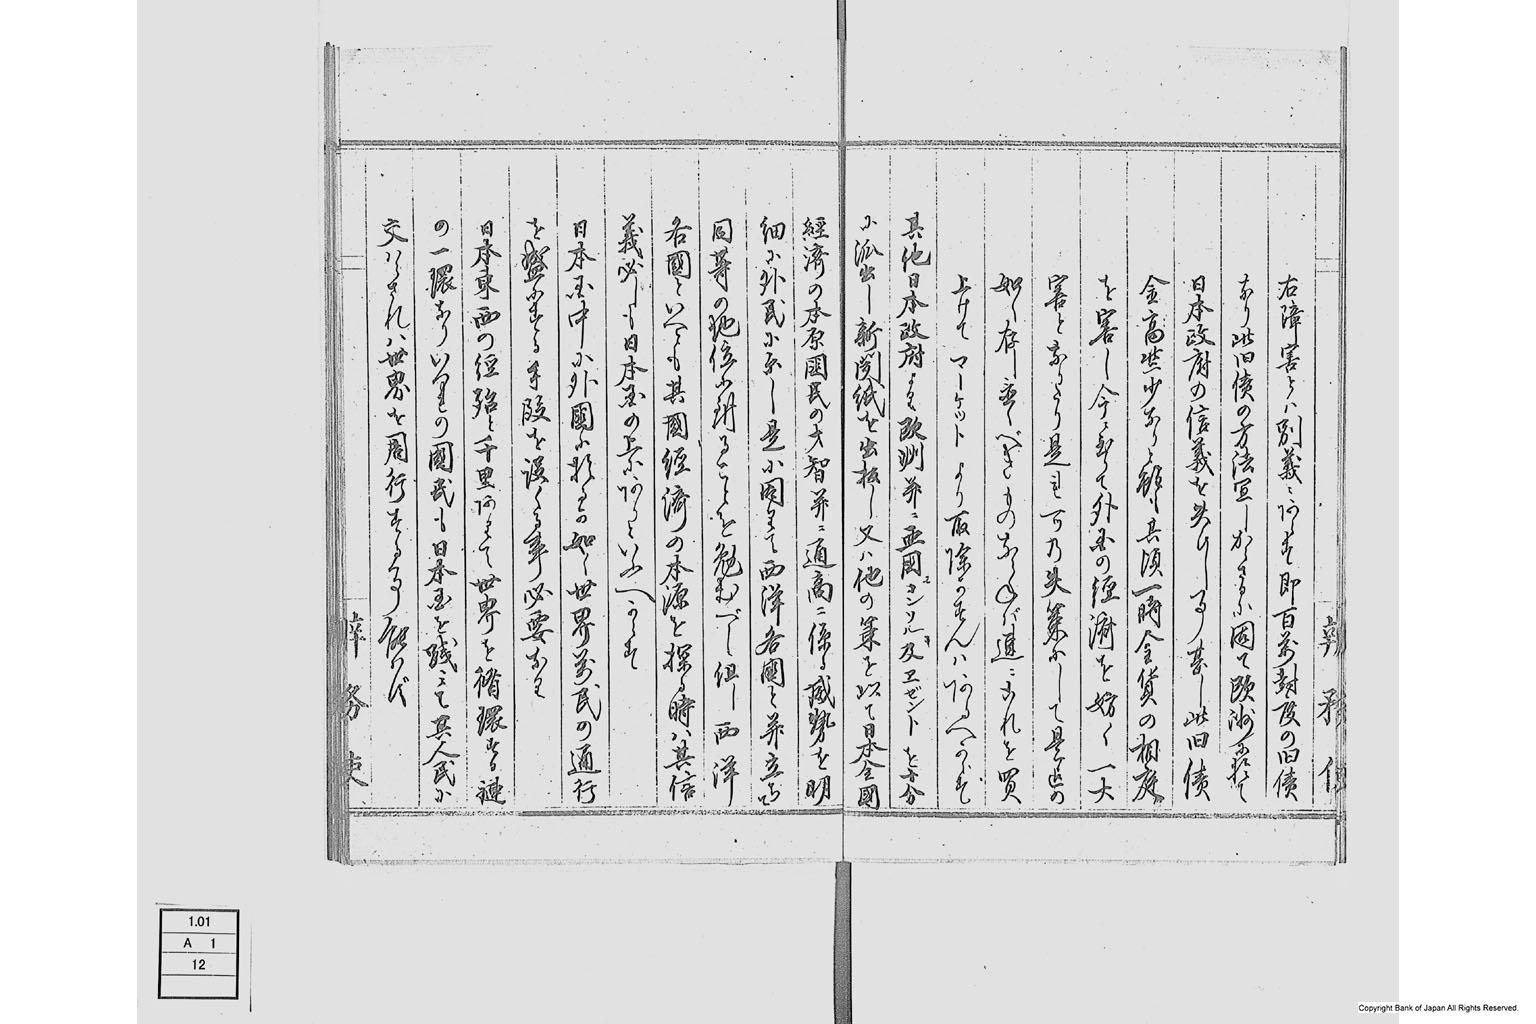 右障害とハ別義ニあらす即百萬封度の旧債
なり此旧債の方法宜しからさるに因て欧洲に於て
日本政府の信義を失ひし事甚し此旧債
金高些少なら雖も其頃一時金貨の相庭
を害し今に至て外国の経済を妨く一大
害となりたり是れ可乃失策にして是迄の
如く存し置くべきものならねば速ニこれを買
上けてマーケットより取除かすんハあるへからず
其他日本政府より欧洲并ニ亜国コンソル及エゼントを十分
に派出し新聞紙を出板し又ハ他の策を以て日本全国
經済の本原國民の才智并ニ通商ニ係る威勢を明
細に外民に示し是に因りて西洋各國と并立ち
同等の地位に躋ることを勉むべし但し西洋
各國といへとも其國經済の本源を探る時ハ其信
義必しも日本国の上にありといふへからす
日本国中に外國に於るか如く世界萬民の通行
を盛にする手段を設くる事必要なり
日本東西の經路と千里ありて世界を循環する鏈
の一環なりいつれの國民も日本国を残して其人民に
交ハらされハ世界を周行する事能はず
1.01
A 1
12
Copyright Bank of Japan All Rights Reserved.